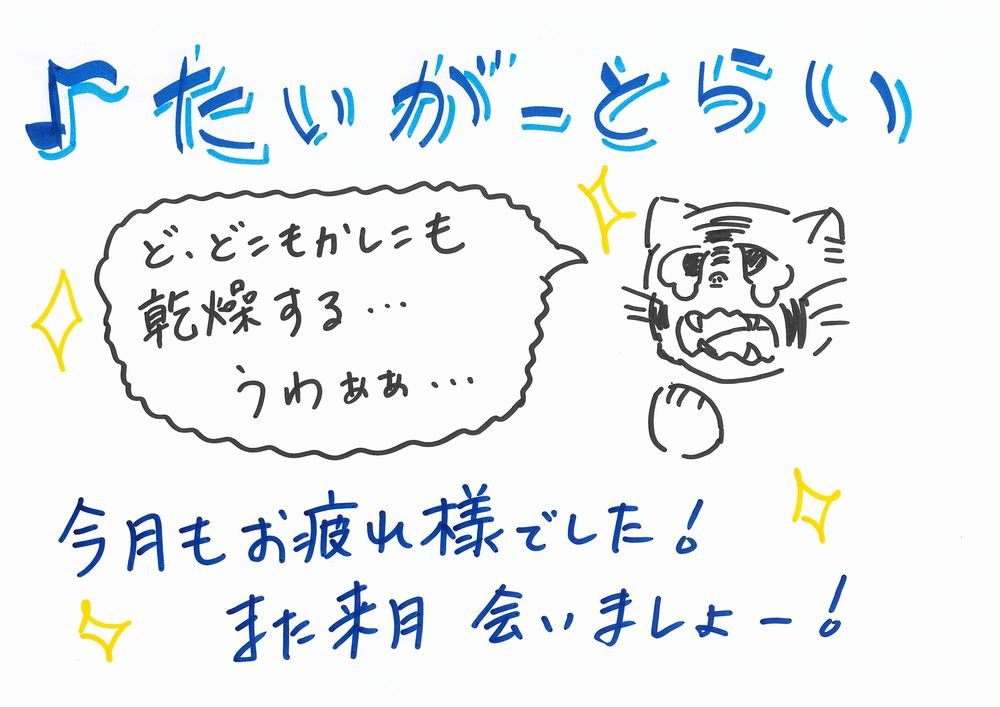 ♪たいがーとらい
ど、どこもかしこも
乾燥する…
うわぁぁ…
今月もお疲れ様でした!
また来月 会いましょー!